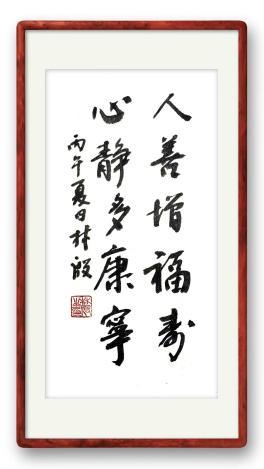 人善增福寿
心静多康寧
丙午夏日林殿